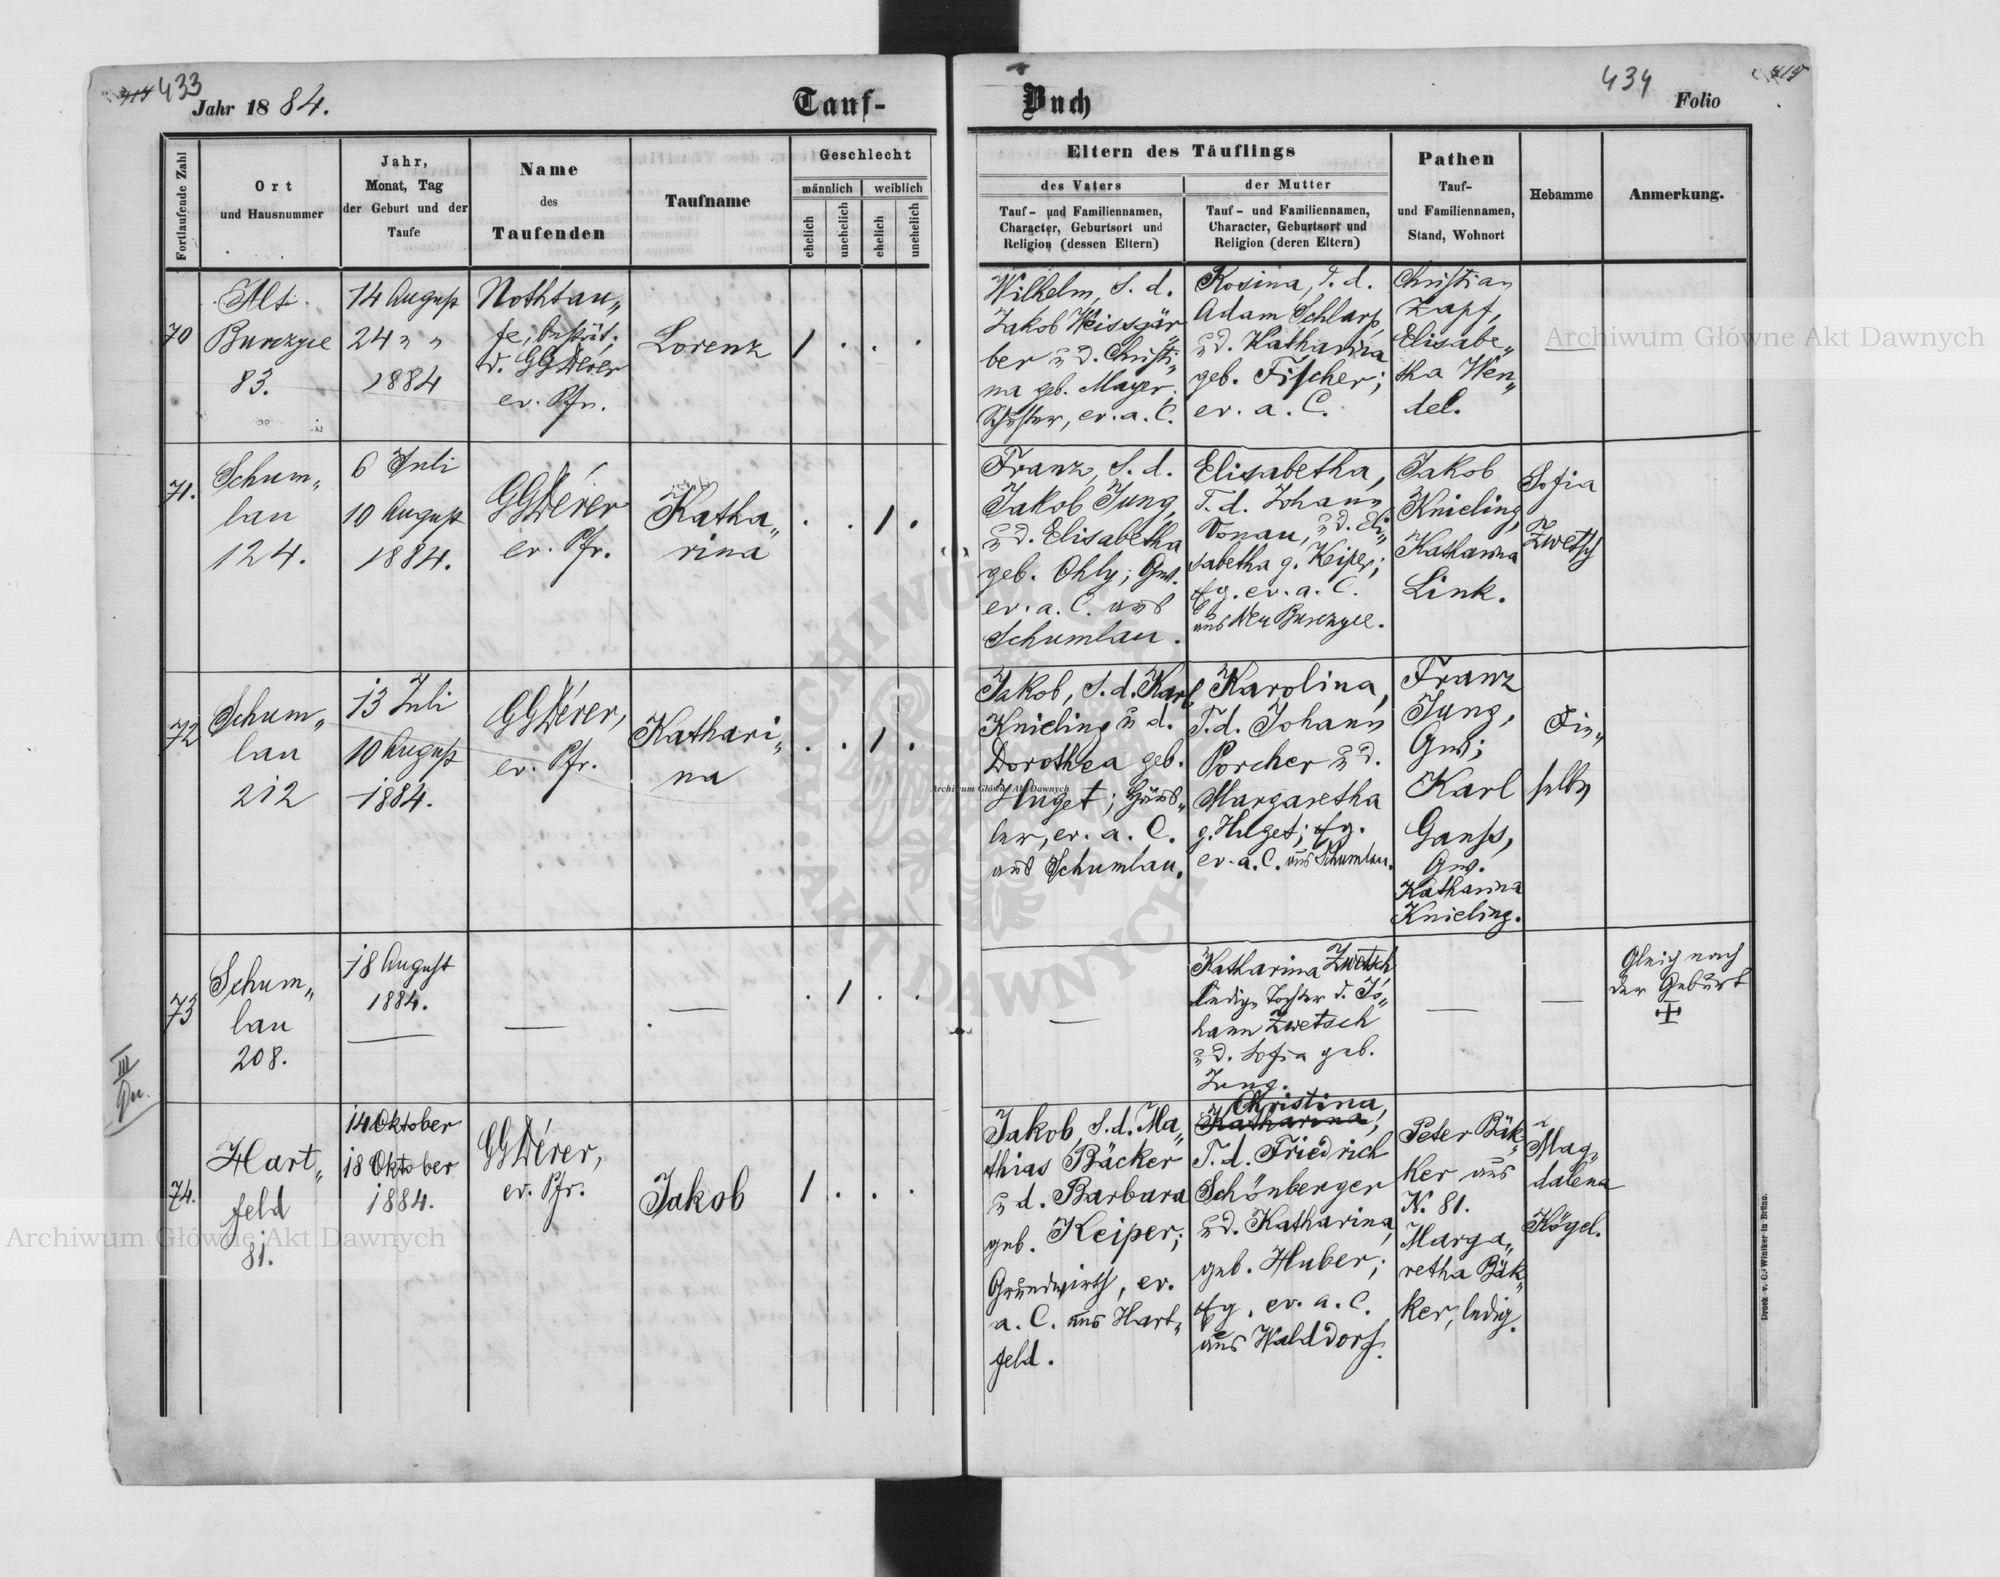 433
Jahr 1884.
Tauf-
Buch
434
Folio
Fortlaufende Zahl
Ort
und Hausnummer
Jahr,
Monat, Tag
der Geburt und der
Taufe
Name
des
Taufenden
Taufname
Geschlecht
männlich
weiblich
ehelich
unehelich
ehelich
unehelich
Eltern des Täuflings
des Vaters
Tauf- und Familiennamen,
Character, Geburtsort und
Religion (dessen Eltern)
der Mutter
Tauf- und Familiennamen,
Character, Geburtsort und
Religion (deren Eltern)
Pathen
Tauf-
und Familiennamen,
Stand, Wohnort
Hebamme
Anmerkung.
70
Alt
Burczyce
83.
14 August
24 " "
1884
Nothtau„
fe; bestät.
d. GGDérer
ev. Pfr.
Lorenz
1 . . .
Wilhelm, S. d.
Jakob Weissgär„
ber u d. Christi„
na geb. Mayer;
Schuster, ev. a. C.
Rosina, T. d.
Adam Schlarp,
u d. Katharina
geb. Fischer;
ev. a. C.
Christian
Zapf,
Elisabe„
tha Wen„
del.
—
71.
Schum„
lau
124.
6 Juli
10 August
1884.
GGDérer
ev. Pfr.
Katha„
rina
. . 1 .
Franz, S. d.
Jakob Jung
u d. Elisabetha
geb. Ohly; Gw.
ev. a. C. aus
Schumlau.
Elisabetha,
T. d. Johann
Donau, u d. Eli„
sabetha g. Keiper;
ev. a. C.
aus Neu Burczyce.
Jakob
Knieling,
Katharina
Link.
Sofia
Zwetsch
72
Schum„
lau
212
13 Juli
10 August
1884.
GGDérer,
ev. Pfr.
Kathari„
na
. . 1 .
Jakob, S. d. Karl
Knieling u d.
Dorothea geb.
Huget; Häus„
ler, ev. a. C.
aus Schumlau.
Karolina,
T. d. Johann
Porcher u d.
Margaretha
g. Huget;
ev. a. C. aus Schumlau.
Franz
Jung,
Gw;
Karl
Ganss,
Gw.
Katharina
Knieling.
Die„
selbe
73
Schum„
lau
208.
18 August
1884.
—
—
—
. 1 . .
—
Katharina Zwetsch
ledige Tochter d. Jo„
hann Zwetsch
u d. Sofia geb.
Jung.
—
—
Gleich nach
der Geburt
III
Qu.
74.
Hart„
feld
81.
14 Oktober
18 Oktober
1884.
GGDérer,
ev. Pfr.
Jakob
1 . . .
Jakob, S. d. Ma„
thias Bäcker
u d. Barbara
geb. Keiper;
Grundwirth, ev.
a. C. aus Hart„
feld.
Christina,
Katharina,
T. d. Friedrich
Schönberger
u d. Katharina,
geb. Huber;
ev. a. C.
aus Walddorf.
Peter Bäk„
ker aus
N. 81.
Marga„
retha Bäk„
ker, ledig.
Mag„
dalena
Kögel.
Druck v. C. Winiker in Brünn.
Archiwum Główne Akt Dawnych
Archiwum Główne Akt Dawnych
Archiwum Główne Akt Dawnych
ARCHIWUM
AKT DAWNYCH